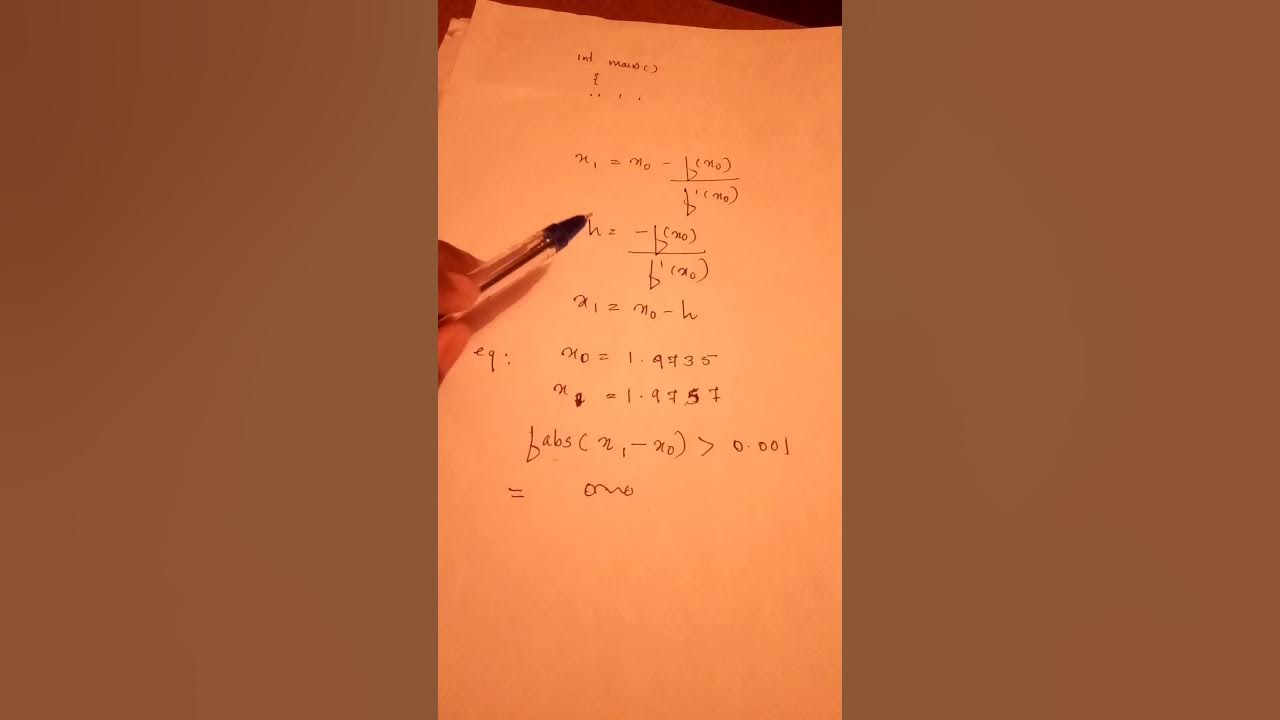 int main()
{
.. . .
x₁ = x₀ - f(x₀)
f'(x₀)
h = -f(x₀)
f'(x₀)
x₁ = x₀ - h
eg: x₀ = 1.9735
x₁ = 1.9757
fabs(x₁ - x₀) > 0.001
=